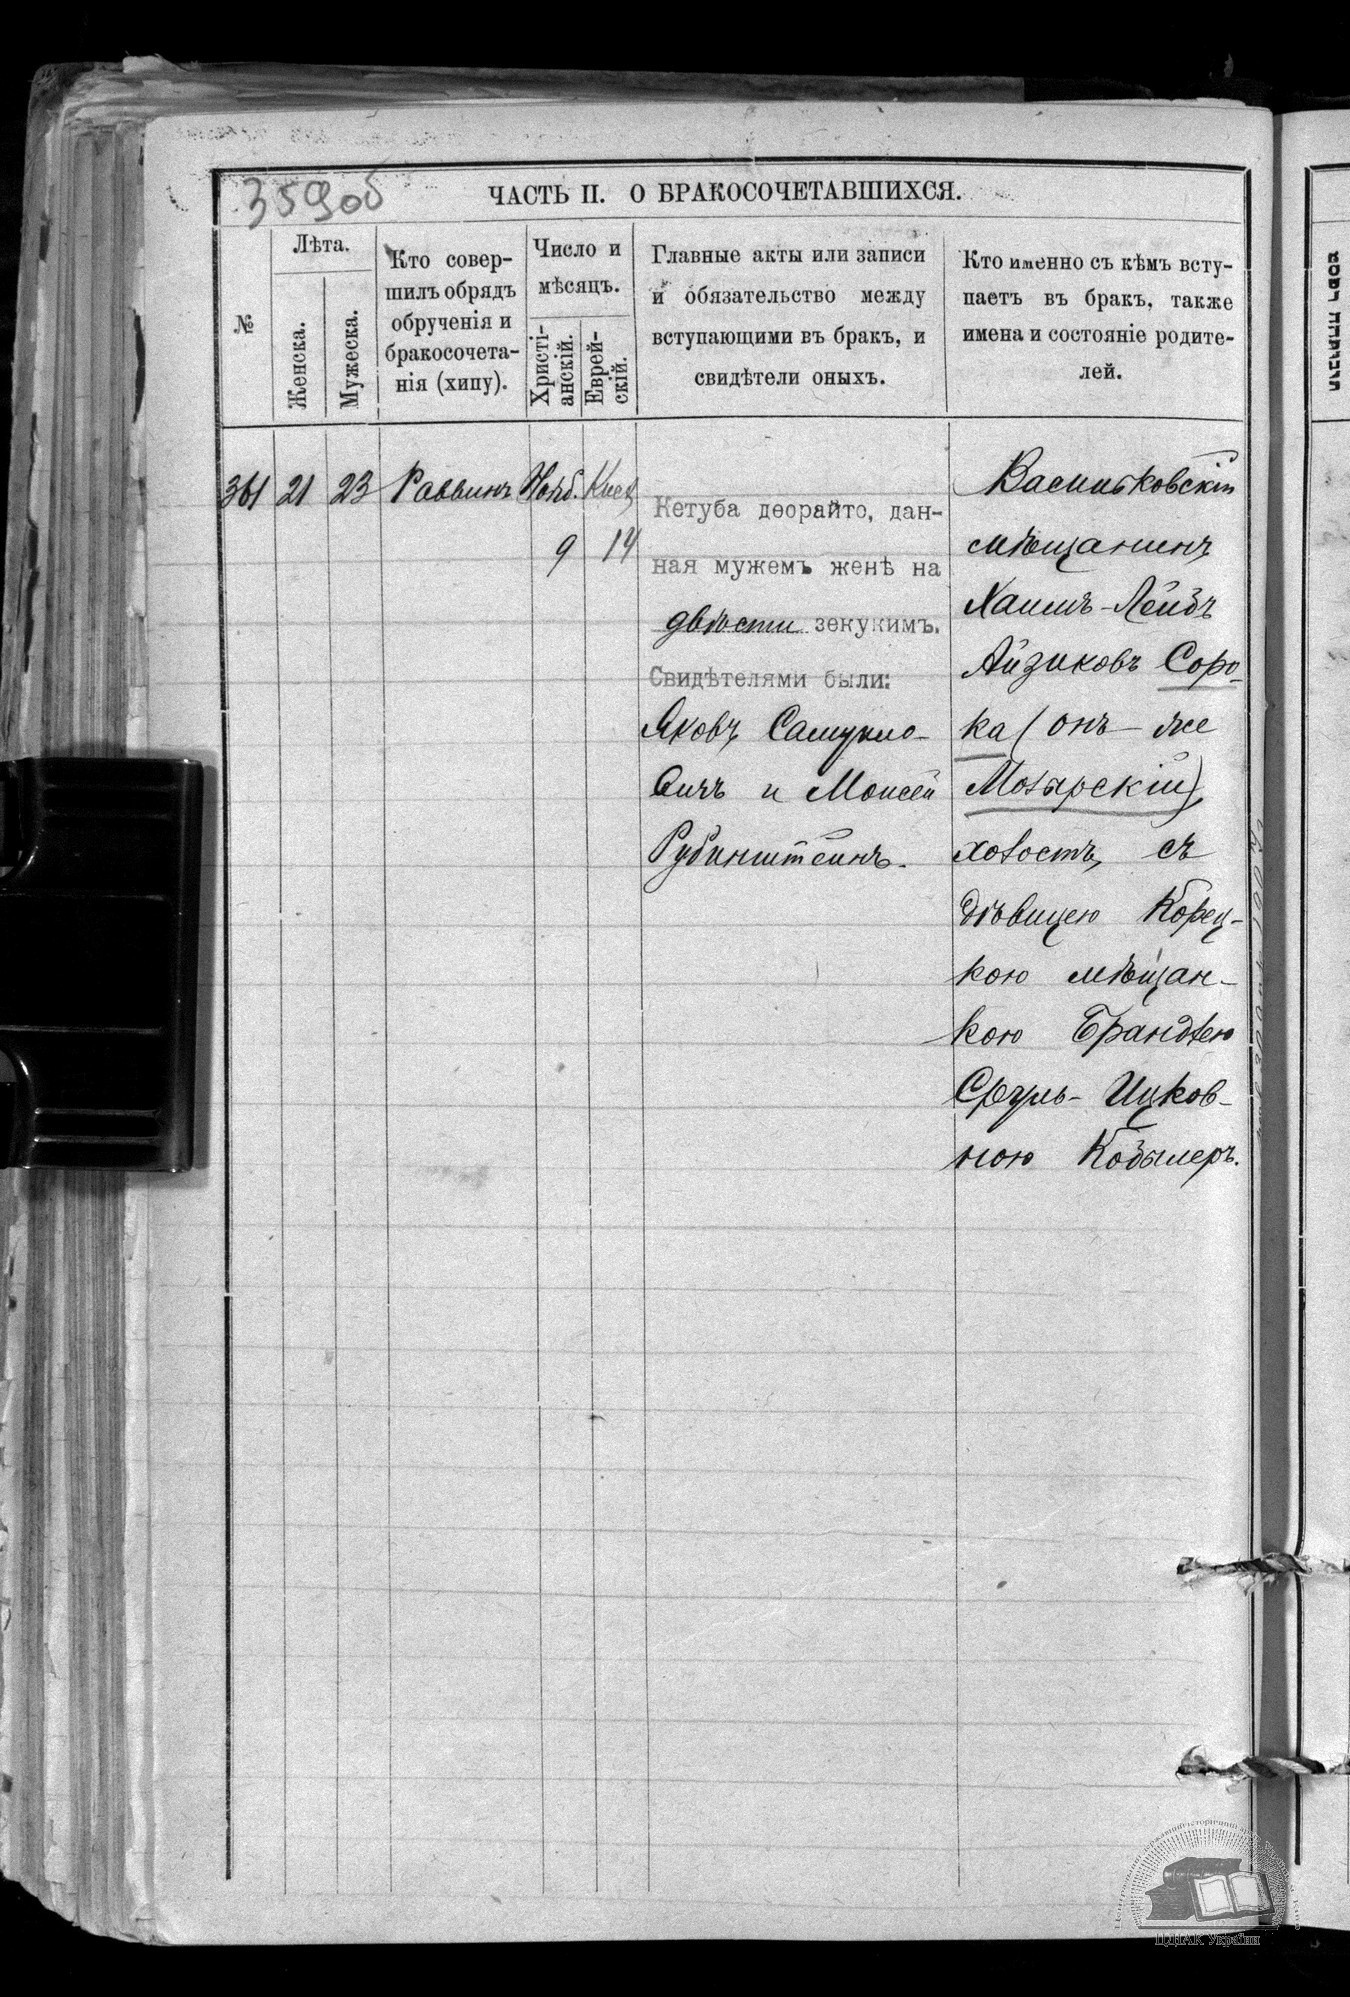 359об
ЧАСТЬ II. О БРАКОСОЧЕТАВШИХСЯ.
№
Лѣта.
Женска.
Мужеска.
Кто совер-
шилъ обрядъ
обрученія и
бракосочета-
нія (хипу).
Число и
мѣсяцъ.
Христі-
анскій.
Еврей-
скій.
Главные акты или записи
и обязательство между
вступающими въ бракъ, и
свидѣтели оныхъ.
Кто именно съ кѣмъ всту-
паетъ въ бракъ, также
имена и состояніе родите-
лей.
361 21 23 Раввинъ Нояб. Кисл.
9 14
Кетуба деорайто, дан-
ная мужемъ женѣ на
двѣсти зекукимъ.
Свидѣтелями были:
Яковъ Самуило-
вичъ и Моисей
Рубинштейнъ.
Васильковскій
мѣщанинъ
Хаимъ-Лейбъ
Айзиковъ Соро-
ка (онъ-же
Мозырскій)
холостъ, съ
дѣвицею Корец-
кою мѣщан-
кою Брандлею
Сруль-Ицков-
ною Кобылеръ.
ЦДІАК України